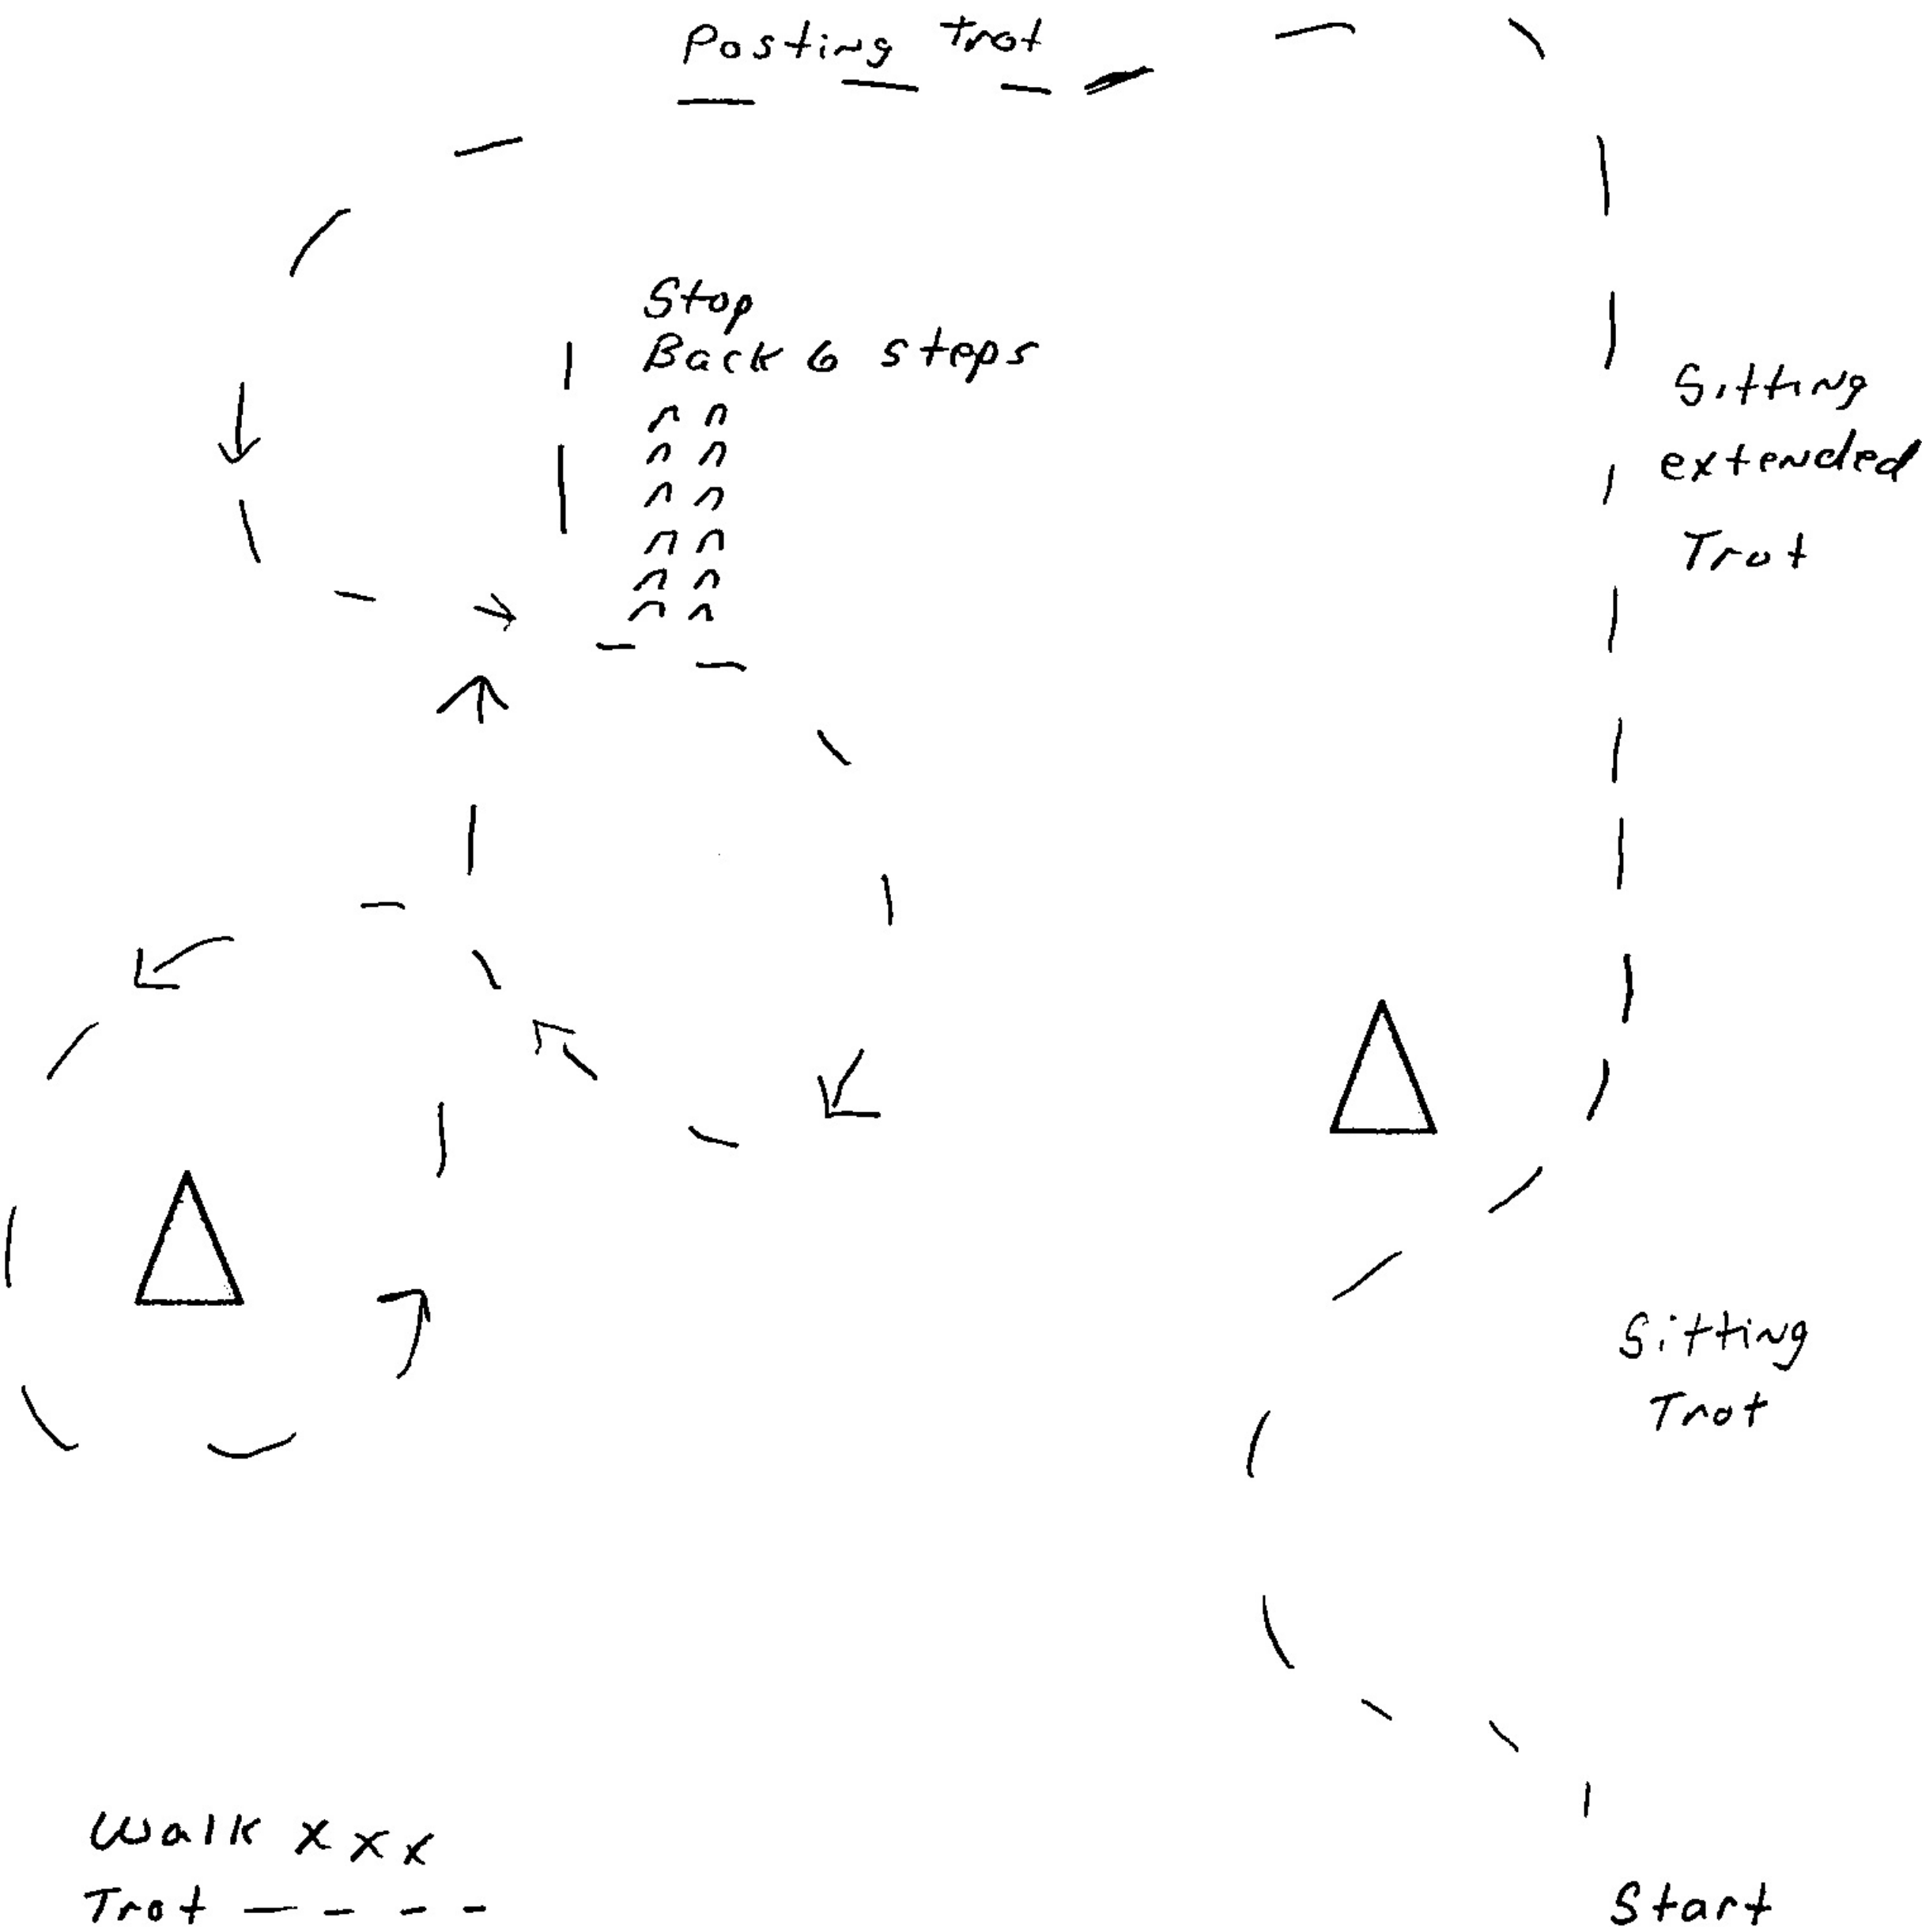 Posting Trot
Stop
Back 6 steps
Sitting
extended
Trot
Sitting
Trot
Walk x x x
Trot — - - -
Start